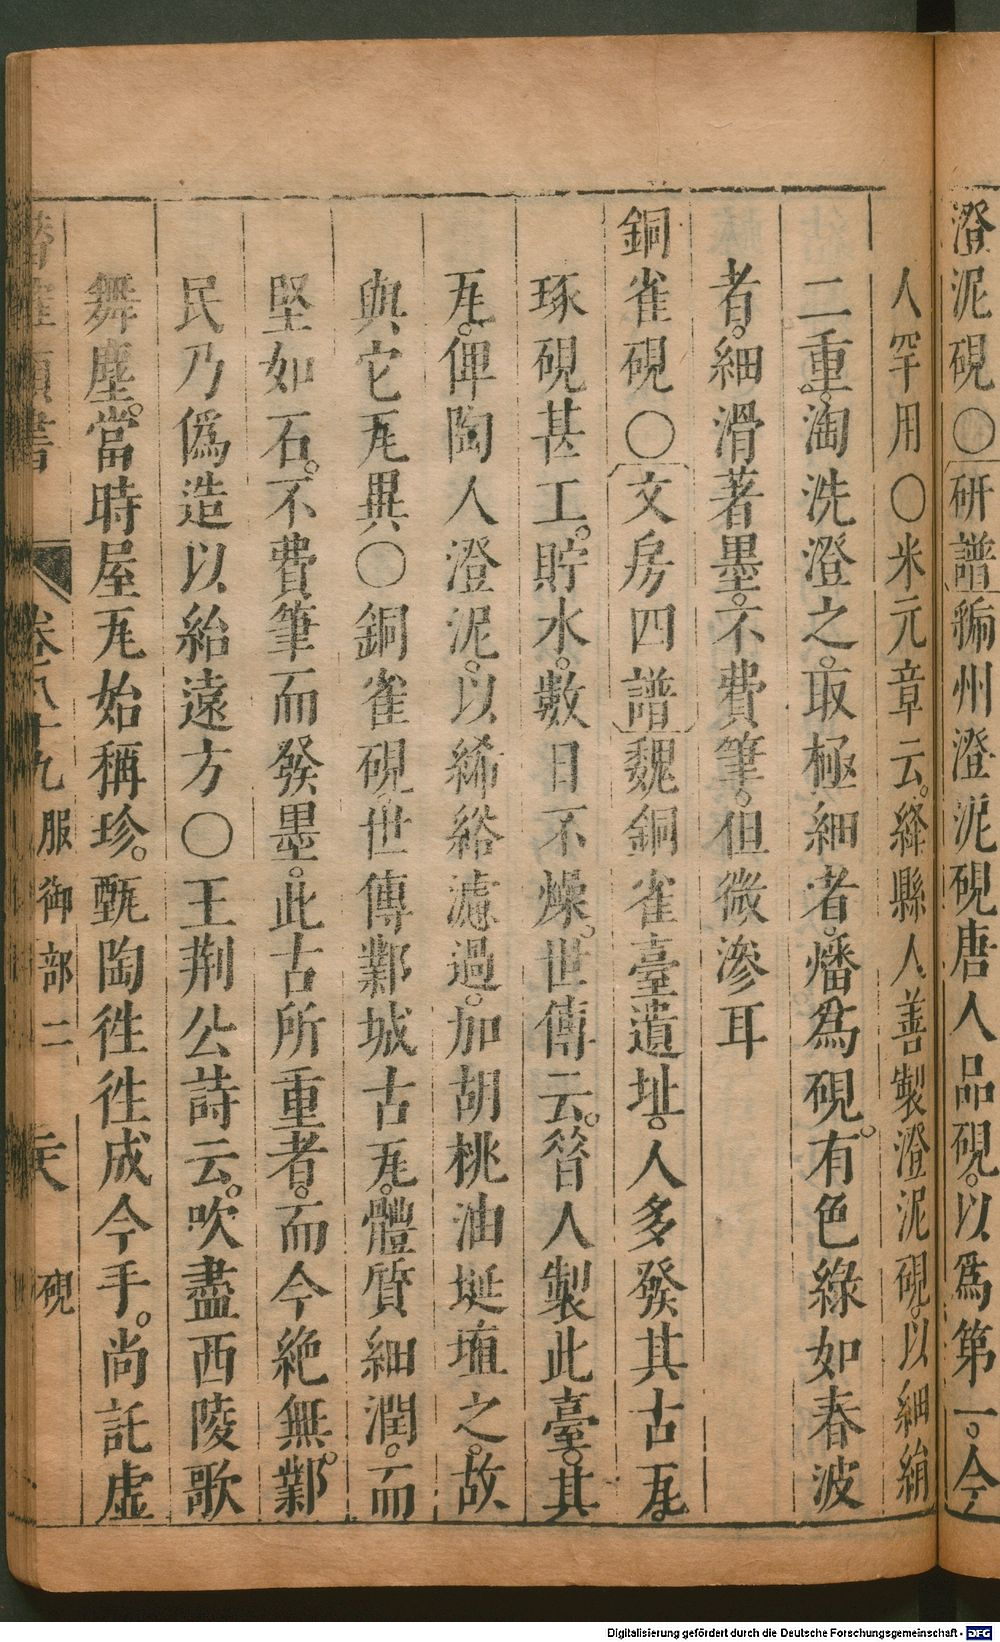 澄泥硯○研譜緶州澄泥硯唐人品硯。以爲第一。今
人罕用○米元章云。絳縣人善製澄泥硯。以細絹
二重。淘洗澄之。取極細者。燔爲硯。有色綠如春波
者。細滑著墨。不費筆。但微滲耳
銅雀硯○文房四譜魏銅雀臺遺址。人多發其古瓦。
琢硯甚工。貯水。數日不燥。世傳云。昝人製此臺。其
瓦。俾陶人澄泥。以絺綌濾過。加胡桃油埏埴之。故
與它瓦異○銅雀硯。世傳鄴城古瓦。體質細潤。而
堅如石。不費筆而發墨。此古所重者。而今絶無。鄴
民乃僞造以紿遠方○王荆公詩云。吹盡西陵歌
舞塵。當時屋瓦始稱珍。甄陶徃徃成今手。尚託虛
卷八十九 服御部二 硯
Digitalisierung gefördert durch die Deutsche Forschungsgemeinschaft - DFG